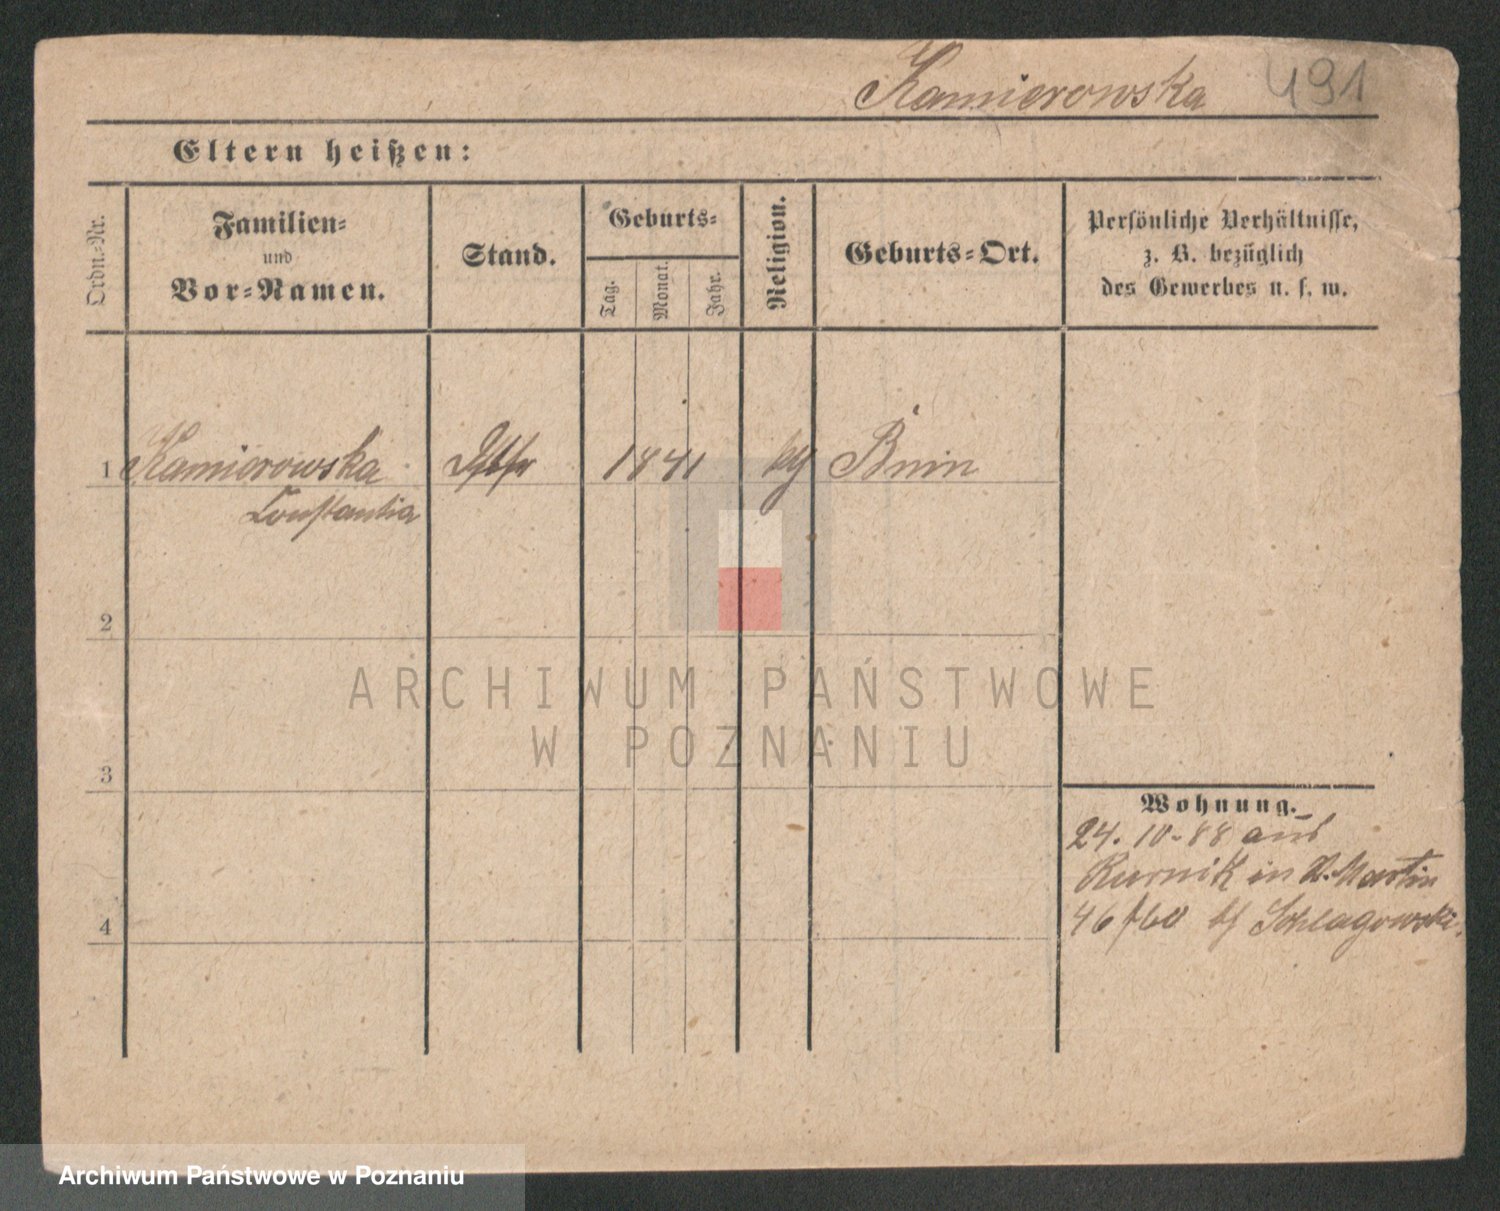 Kamierowska 491
Eltern heißen:
Ordn.-Nr.
Familien-
und
Vor-Namen.
Stand.
Geburts-
Tag.
Monat.
Jahr.
Religion.
Geburts-Ort.
Persönliche Verhältnisse,
z. B. bezüglich
des Gewerbes u. s. w.
1 Kamierowska 1841 Bnin
Constantia
2
3
4
Wohnung.
24. 10-88 aus
Kurnik in St. Martin
46/60 bei Schlagowski.
ARCHIWUM PAŃSTWOWE
W POZNANIU
Archiwum Państwowe w Poznaniu